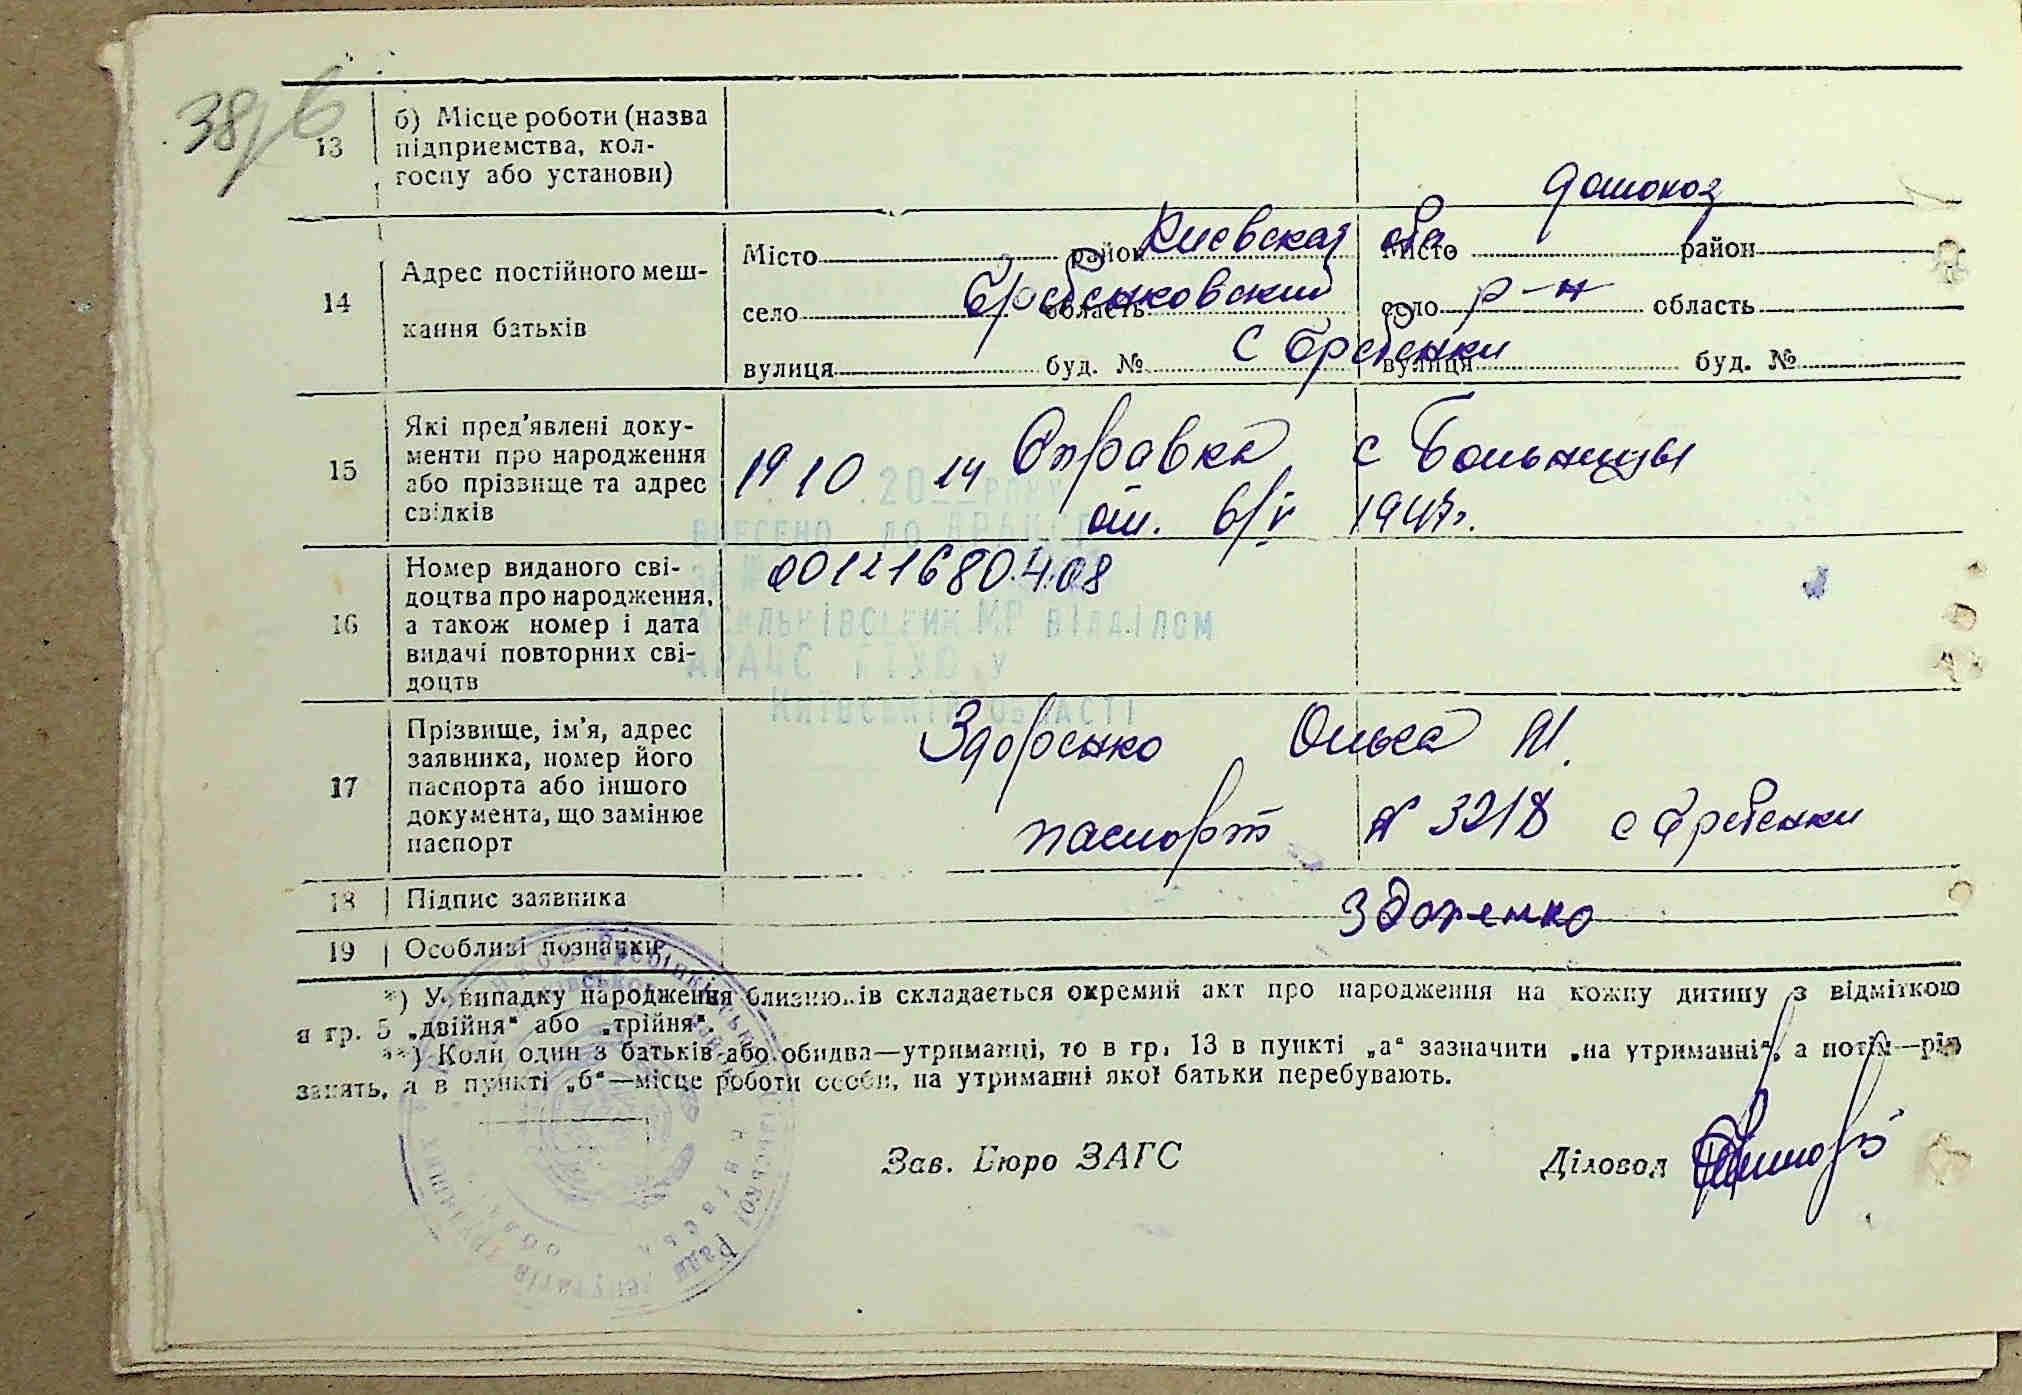 38
13 б) Місце роботи (назва
підприємства, кол-
госпу або установи)
14 Адрес постійного меш-
кання батьків
Місто район Киевская обл Місто район
село Гребенковский область село р-н область
вулиця буд. № с Гребенки вулиця буд. №
15 Які пред'явлені доку-
менти про народження
або прізвище та адрес
свідків
19 10 14 Справка с Больницы
от. 6/V 1947г.
.20 року
внесено до
16 Номер виданого сві-
доцтва про народження,
а також номер і дата
видачі повторних сві-
доцтв
00121680408
МР відділом
у
Київській області
17 Прізвище, ім'я, адрес
заявника, номер його
паспорта або іншого
документа, що замінює
паспорт
Здоренко Ольга И.
паспорт № 3218 с Гребенки
18 Підпис заявника Здоренко
19 Особливі познанки
*) У випадку народження близнюків складається окремий акт про народження на кожну дитину з відміткою
в гр. 5 „двійня“ або „трійня“.
**) Коли один з батьків або обидва—утриманці, то в гр. 13 в пункті „а“ зазначити „на утриманні“, а потім—рід
занять, а в пункті „б“—місце роботи особи, на утриманні якої батьки перебувають.
Зав. Бюро ЗАГС Діловод